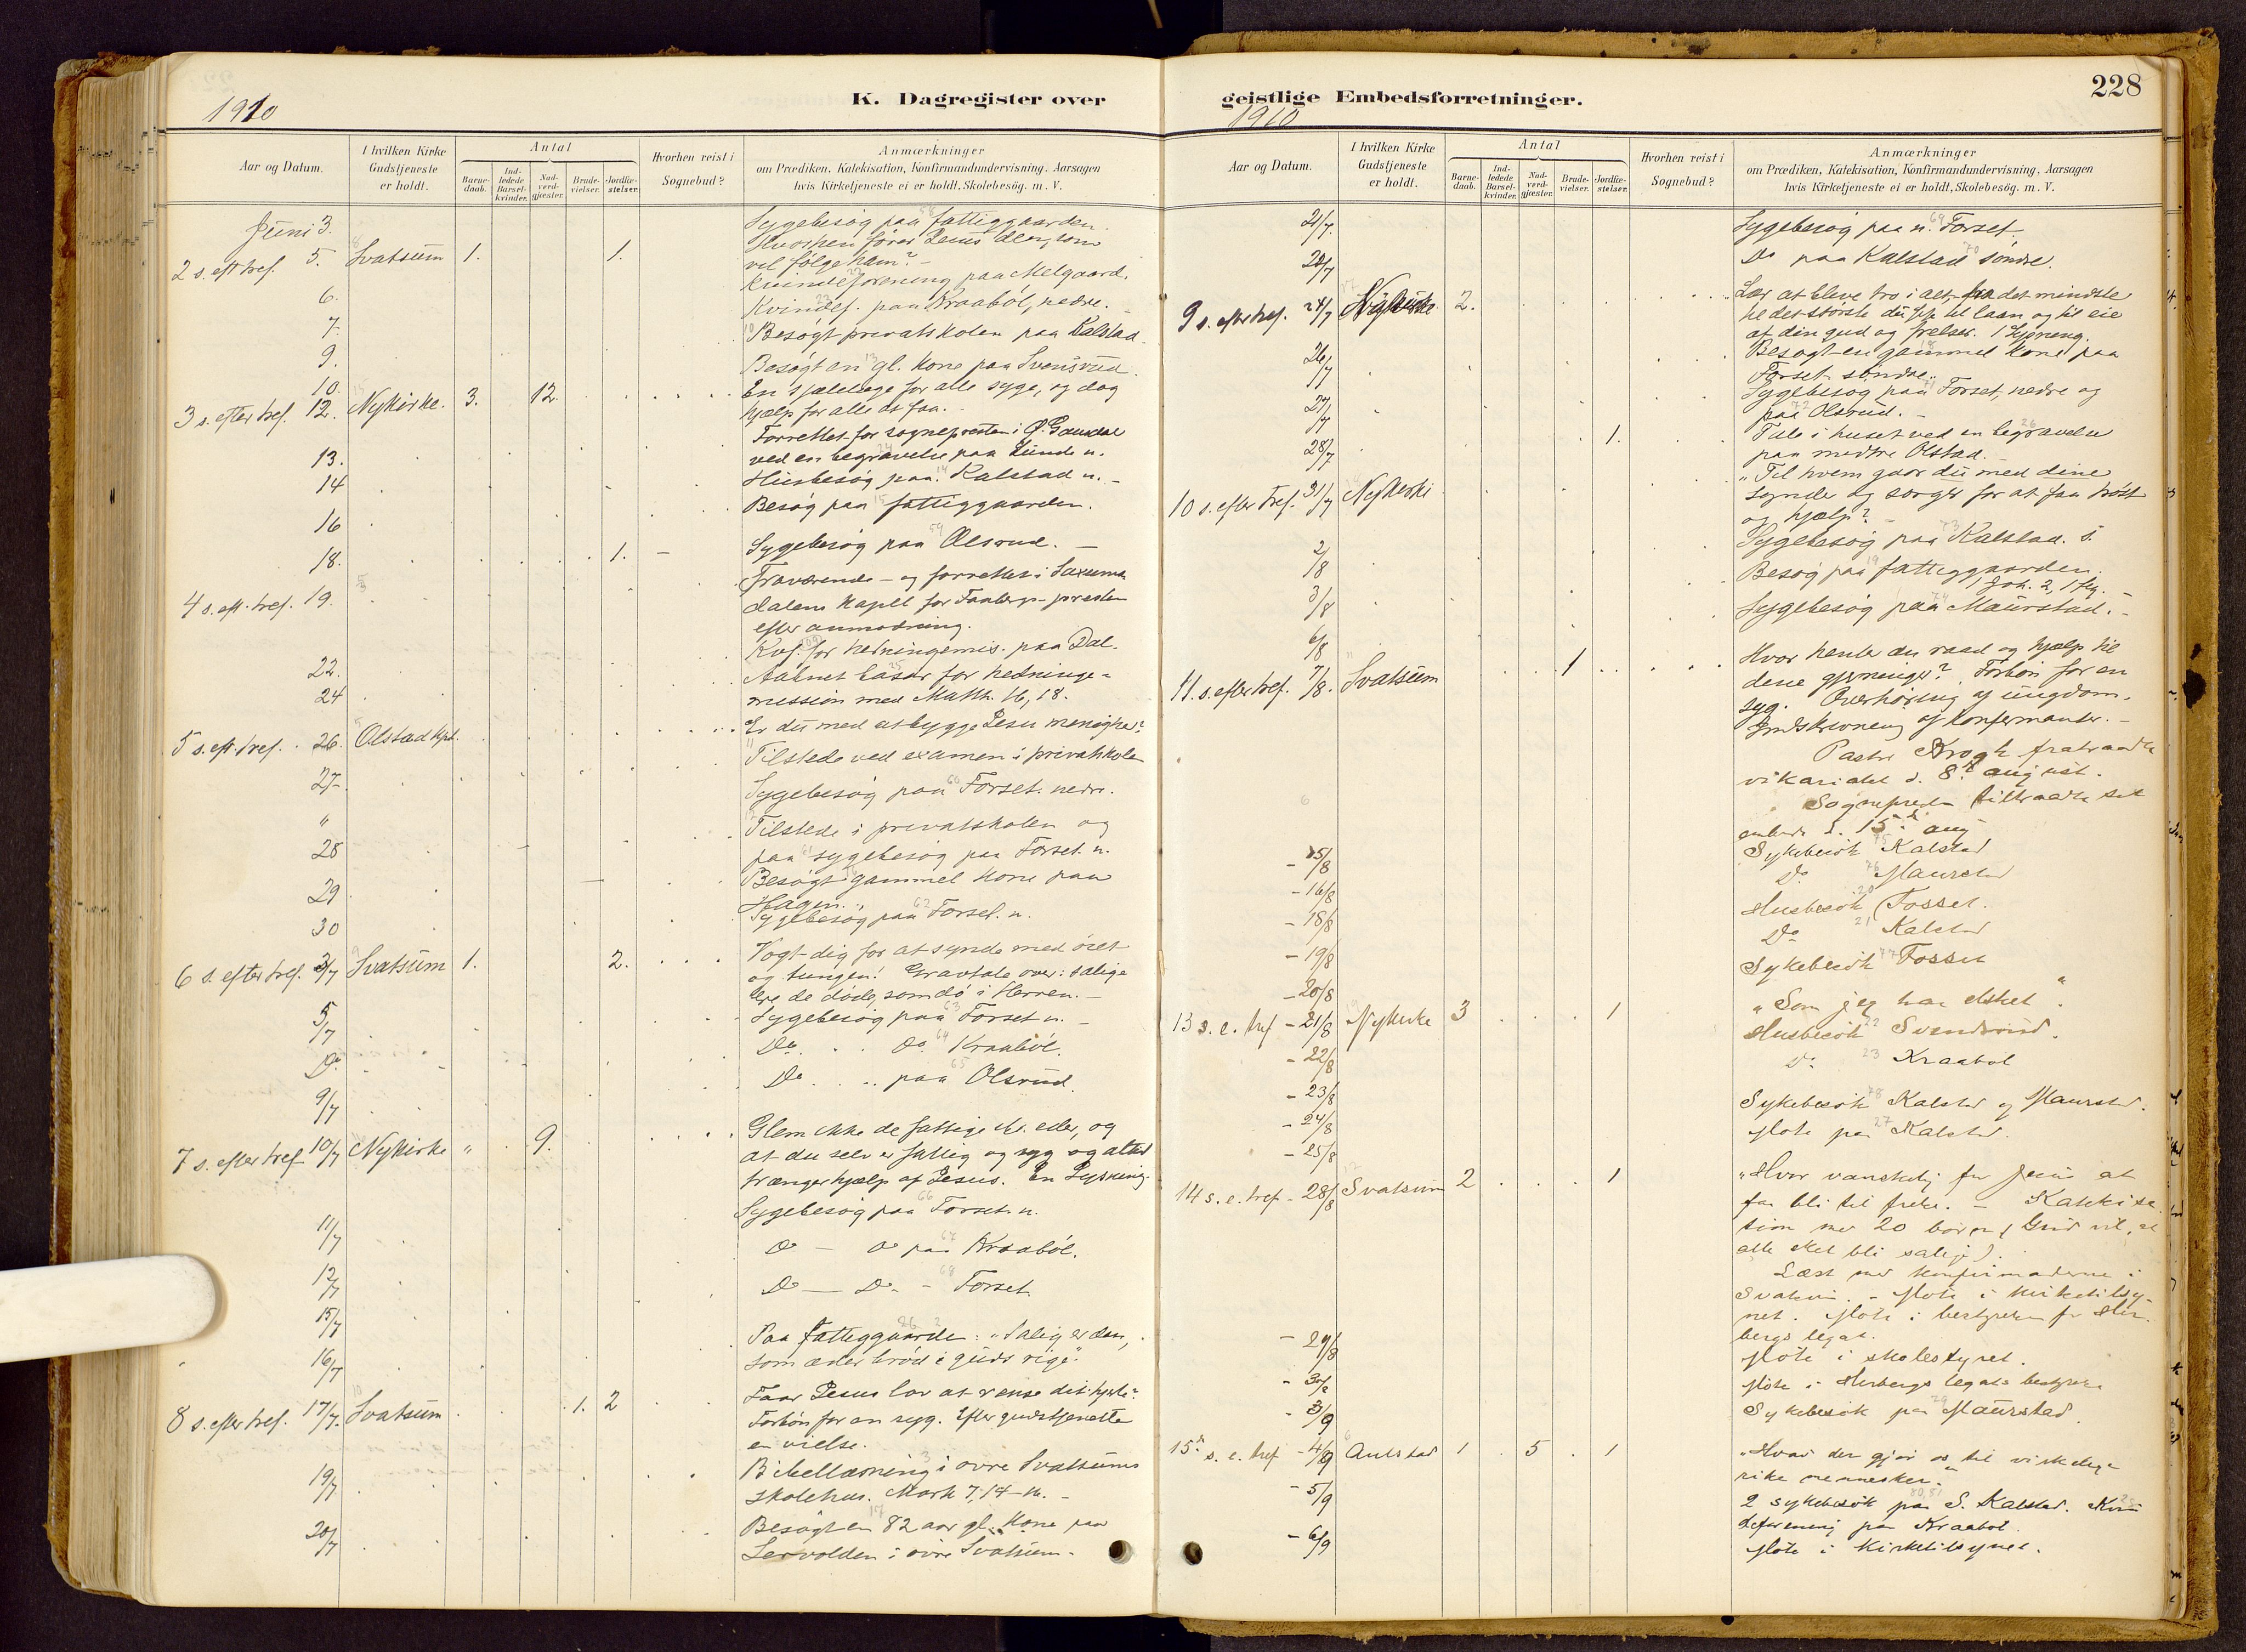 1910
K. Dagregister over
Aar og Datum.
I hvilken Kirke Gudstjeneste er holdt.
Antal
Barne-daab.
Ind-ledede Barsel-kvinder.
Nad-verd-gjæster.
Brude-vielser.
Jordfæ-stelser.
Hvorhen reist i Sognebud?
Anmærkninger
om Prædiken, Katekisation, Konfirmandundervisning, Aarsagen
hvis Kirketjeneste ei er holdt, Skolebesög. m. V.
Juni 3. Sygebesög paa fattiggaarden.
2 s. eft. tref. 5. Svatsum 1. 1. Hvorhen fører Jesus den, som
vil følge ham? -
Kvindeforening paa Melgaard.
6. Kvindef. paa Kraaböl, nedre.
7. Besögt privatskolen paa Kalstad.
9. Besögt en gl. Kone paa Svensrud.
10.
3 s. efter tref. 12. Nykirke. 3. 12. En sjælelæge for alle syge, og dog
hjælp for alle at faa. -
Forrettet for sognepresten i Ø. Gausdal
13. ved en begravelse paa Lunde n.
14 Husbesög paa Kalstad n. -
16 Besög paa fattiggaarden.
18. 1. - Sygebesög paa Olsrud. -
4 s. eft. tref. 19. Fraværende - og forrettet i Saxum-
dalens Kapel for Faabergs-presten
efter anmodning.
22. Kvf. for hedningemis. paa Dal.
24 Aabnet basar for hedninge-
mission med Matth. 16, 18.
5 s. eft. tref. 26. Olstad Kpl. Er du med at bygge Jesu menighed?
27- Tilstede ved examen i privatskolen
" Sygebesög paa Forset. nedre.
28 Tilstede i privatskolen og
paa sygebesög paa Forset. n.
29 Besögt gammel Kone paa
Hagen.
30 Sygebesög paa Forset. n.
6 s. efter tref. 3/7 Svatsum 1. 2. Vogt dig for at synde med öret
og tungen! Gravtale over: salige
ere de døde, som dö i Herren. -
5/7 Sygebesög paa Forset n. -
Do Do Do Kraaböl.
9/7 Do paa Olsrud.
7 s. efter tref. 10/7 Nykirke " 9. Glem ikke de fattige eller, og
at du selv er fattig og syg og altid
trænger hjælp af Jesus. En Lysning.
11/7 Sygebesög paa Forset. n.
12/7 Do - Do paa Kraaböl.
15/7 Do - Do - Forset
16/7 Paa fattiggaarden: "Salig er den,
som æder bröd i guds rige".
8 s. efter tref. 17/7. Svatsum 1. 2 Faar Jesus lov at rense dit hjerte?
Forbön for en syg. Efter gudstjenesten
en vielse.
19/7 Bibellæsning i övre Svatsums
skolehus. Mark 7, 14-16. -
20/7 Besögt en 82 aar gl. Kone paa
Lervolden i övre Svatsum.
geistlige Embedsforretninger.
228
1910
Aar og Datum.
I hvilken Kirke Gudstjeneste er holdt.
Antal
Barne-daab.
Ind-ledede Barsel-kvinder.
Nad-verd-gjæster.
Brude-vielser.
Jordfæ-stelser.
Hvorhen reist i Sognebud?
Anmærkninger
om Prædiken, Katekisation, Konfirmandundervisning, Aarsagen
hvis Kirketjeneste ei er holdt, Skolebesög. m. V.
21/7. Sygebesög paa n. Forset
Do paa Kalstad söndre.
9 s. efter tref. 24/7 Nykirke 2. Lær at bleve tro i alt, fra det mindste
til det störste du fik til laan og til eie
af din gud og frelser. 1 Lysning.
26/7 Besøgt en gammel Kone paa
Forset söndre.
27/7 Sygebesög paa Forset, nedre og
paa Olsrud. -
28/7 1. Tale i huset ved en begravelse
paa medtre Olstad. -
10 s. efter tref. 31/7 Nykirke "Til hvem gaar du med dine
synder og sorger for at faa tröst
og hjælp?
2/8 Sygebesög paa Kalstad. s.
3/8 Besög paa fattiggaarden.
1 Joh. 2, 1 flg. -
6/8 Sygebesög paa Maurstad. -
11. s. efter tref. 7/8. Svatsum 1 Hvor henter du raad og hjælp til
dine gjerninger? Forbön for en
syg. Overhöring af ungdom.
Indskrivning af konfirmanter. -
Pastor Krogh fratraadte
vikariatet d. 8de august.
Sognepresten tiltraadte sit
embede d. 15de aug
- 15/8 Sykebesök Kalstad
- 16/8 Do Maurstad
- 18/8 Husbesök Fosset.
- 19/8 Do Kalstad
- 20/8 Sykebesök Fosset
13 s. e. tref - 21/8 Nykirke 3 1 "Som jeg har elsket".
- 22/8 Husbesök Svendsrud.
- 23/8 Do Kraabol
- 24/8 Sykebesök Kalstad og Maurstad.
- 25/8 Möte paa Kalstad.
14 s. e. tref - 28/8 Svatsum 2 1 "Hvor vanskelig for Jesus at
faa bli til frelse. - Katekisa
tion med 20 börn (Gud vil, at
alle skal bli salige).
Læst med konfirmanterne i
Svatsum. - Möte i kirketilsy-
net. Möte i bestyrelsen for Her-
bergs legat.
- 29/8 Möte i skolestyret.
Möte i Herbergs legats bestyrelse
- 3/9 Sykebesök paa Maurstad.
15de s. e. tref - 4/9 Aulstad 1 5 1 "Hvad der gjör os til virkelige
rike mennesker."
- 5/9 2 sykebesök paa S. Kalstad. Kvin
deforening paa Kraabol.
- 6/9 Möte i Kirketilsynet.